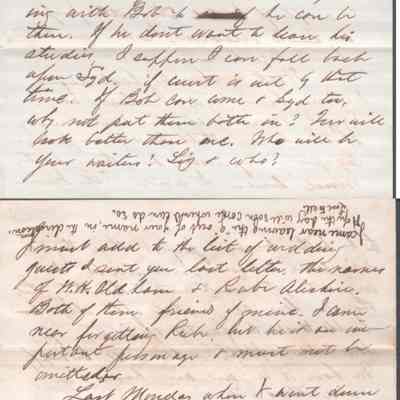 ing with Bob to if he can be
then. If he dont want to leave his
studies, I suppose I can fall back
upon Syd, if court is out by that
time. If Bob can come & Syd too,
why not put them both in? Four will
look better than one. Who will be
your waiters? Liz & who?
I came near leaving the "e" out of your name, in the direction.
By the day will soon come when I can do so.
I must add to the list of wedding
guests I sent you last letter, the names
of W. H. Oldham & Rube
Both of them friends of mine. I came
near forgetting Rube, but he is an im-
portant personage & must not be
omitted.
Last Monday when I went down